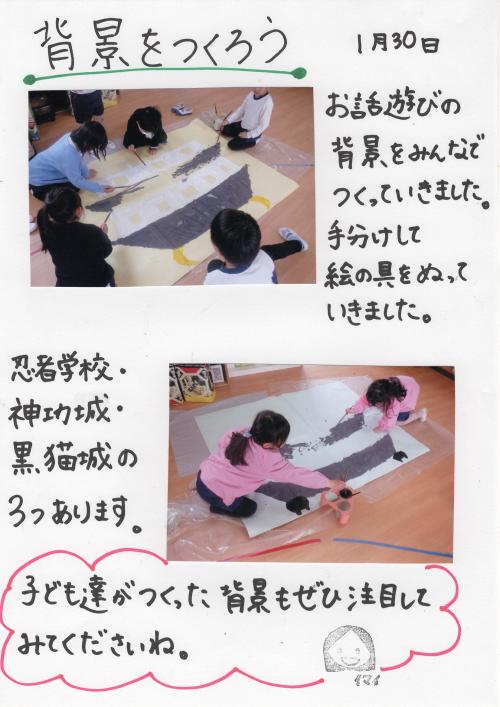 背景をつくろう
1月30日
お話遊びの
背景をみんなで
つくっていきました。
手分けして
絵の具をぬって
いきました。
忍者学校・
神功城・
黒猫城の
3つあります。
子ども達がつくった背景もぜひ注目して
みてくださいね。
イマイ